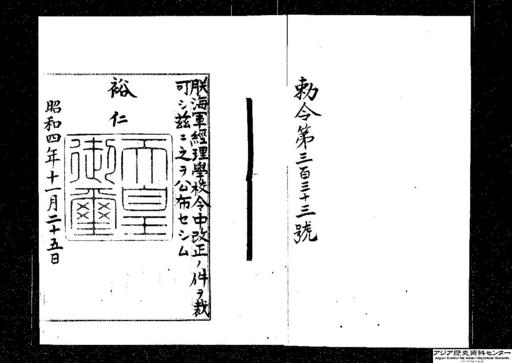 勅令第三百三十三號
朕海軍經理學校令中改正ノ件ヲ裁
可シ茲ニ之ヲ公布セシム
裕仁
天皇
御璽
昭和四年十一月二十五日
アジア歴史資料センター
Japan Center for Asian Historical Records